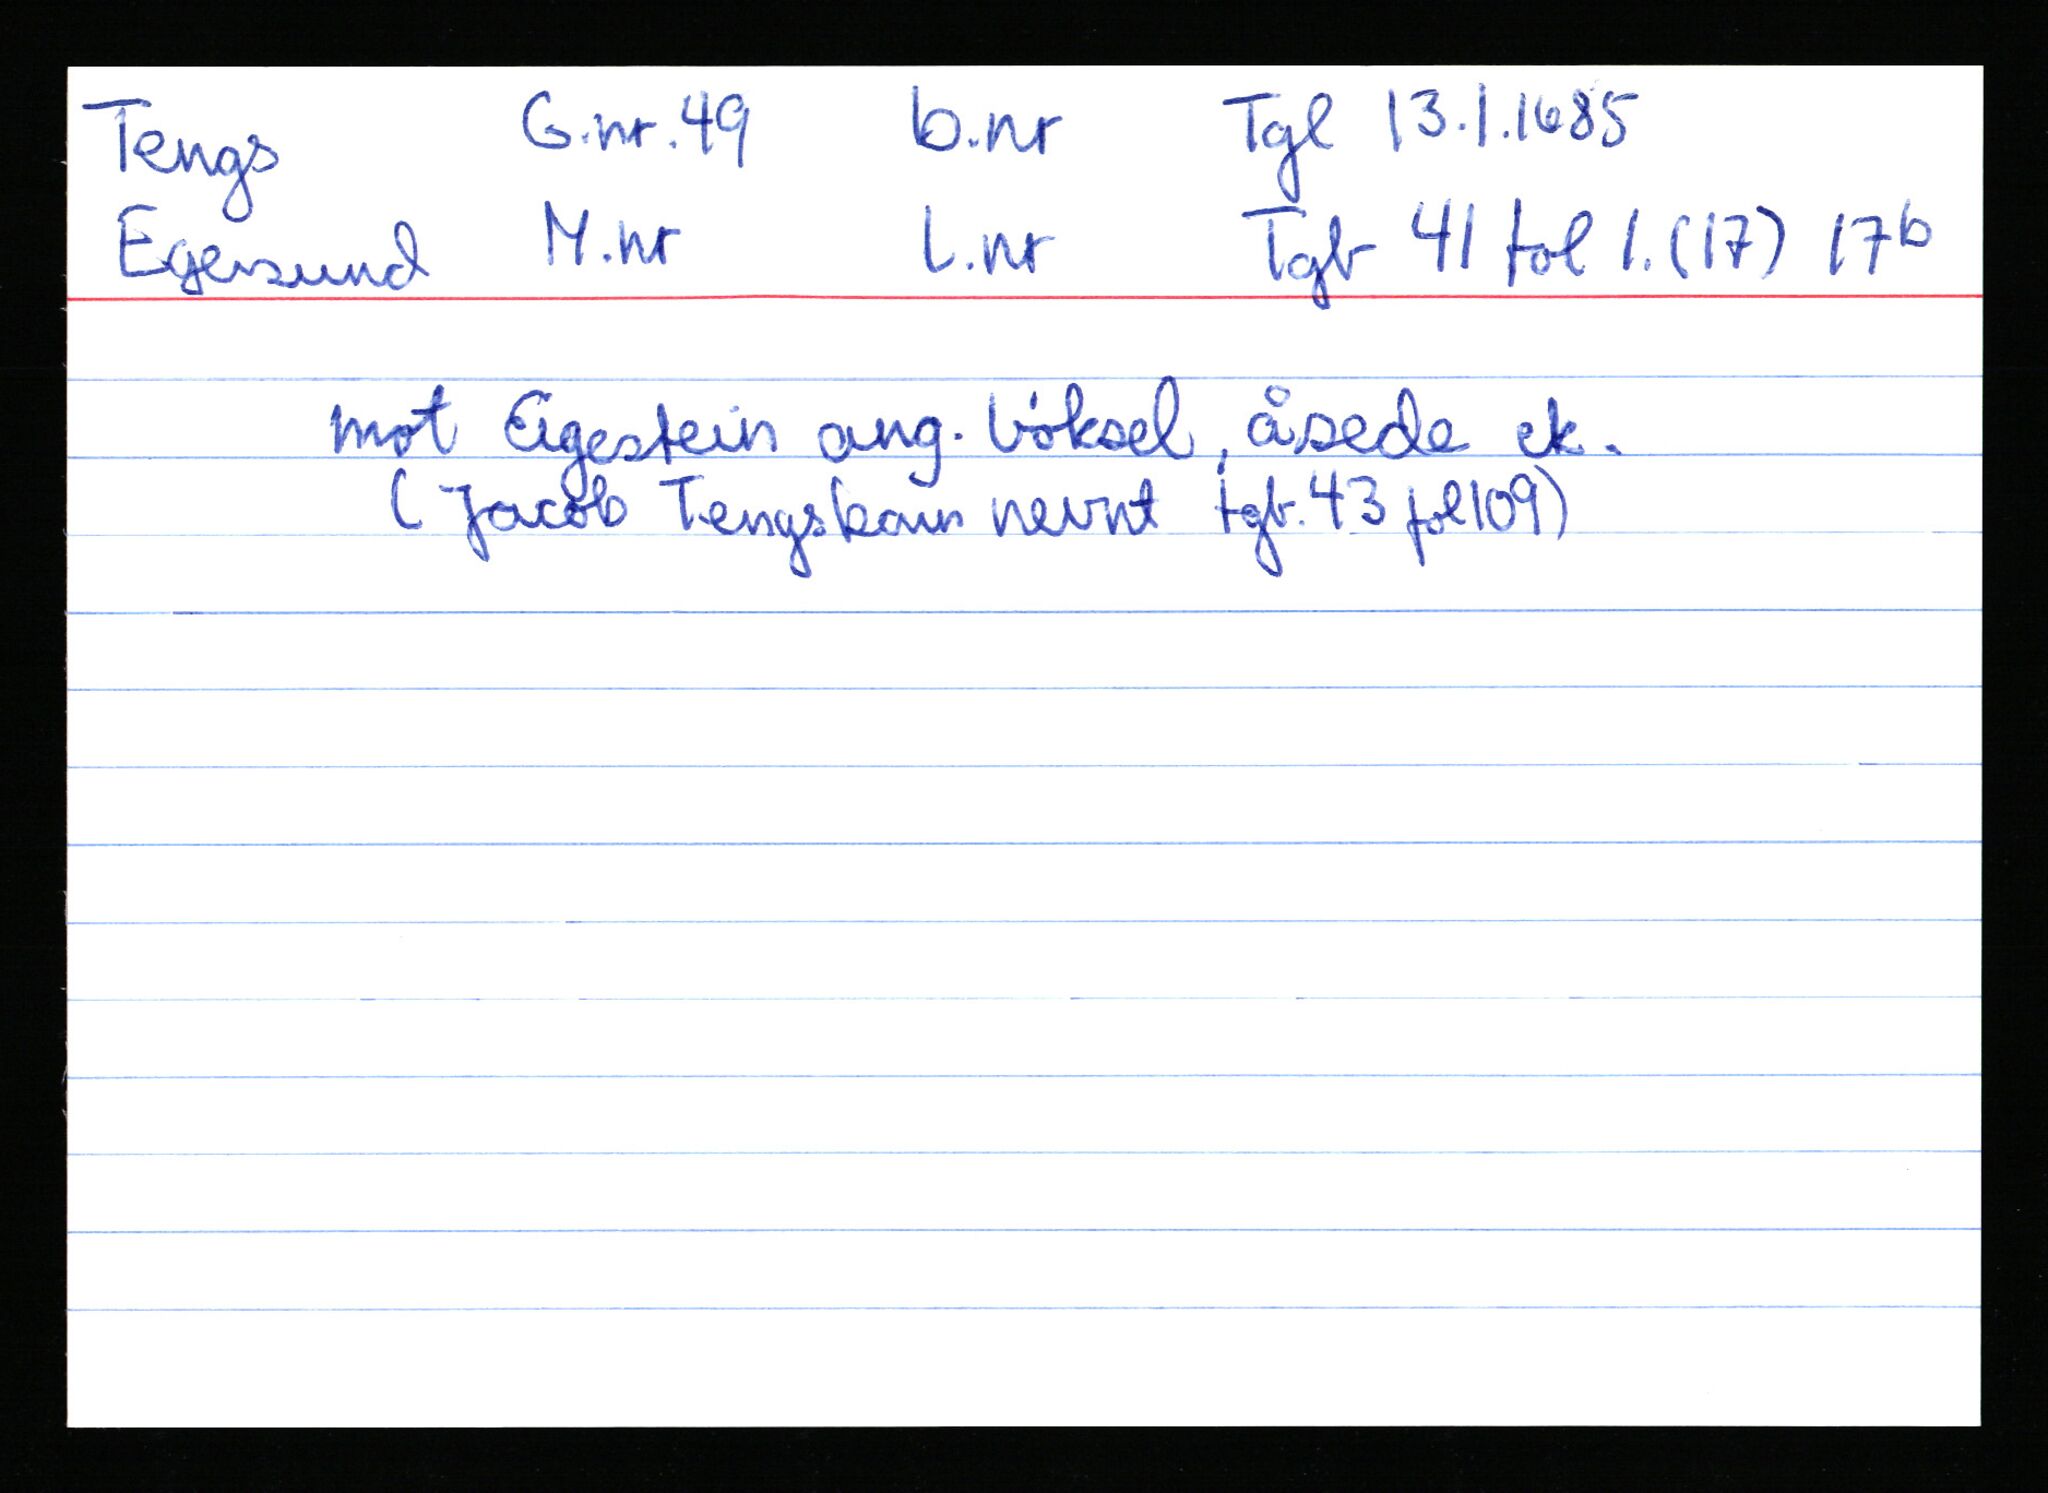 Tengs G.nr. 49 b.nr Tgl 13.1.1685
Egersund M.nr L.nr Tgb 41 fol 1. (17) 17b
mot Eigestein ang. böksel, åsede ek.
(Jacob Tengskaun nevnt tgb. 43 fol 109)